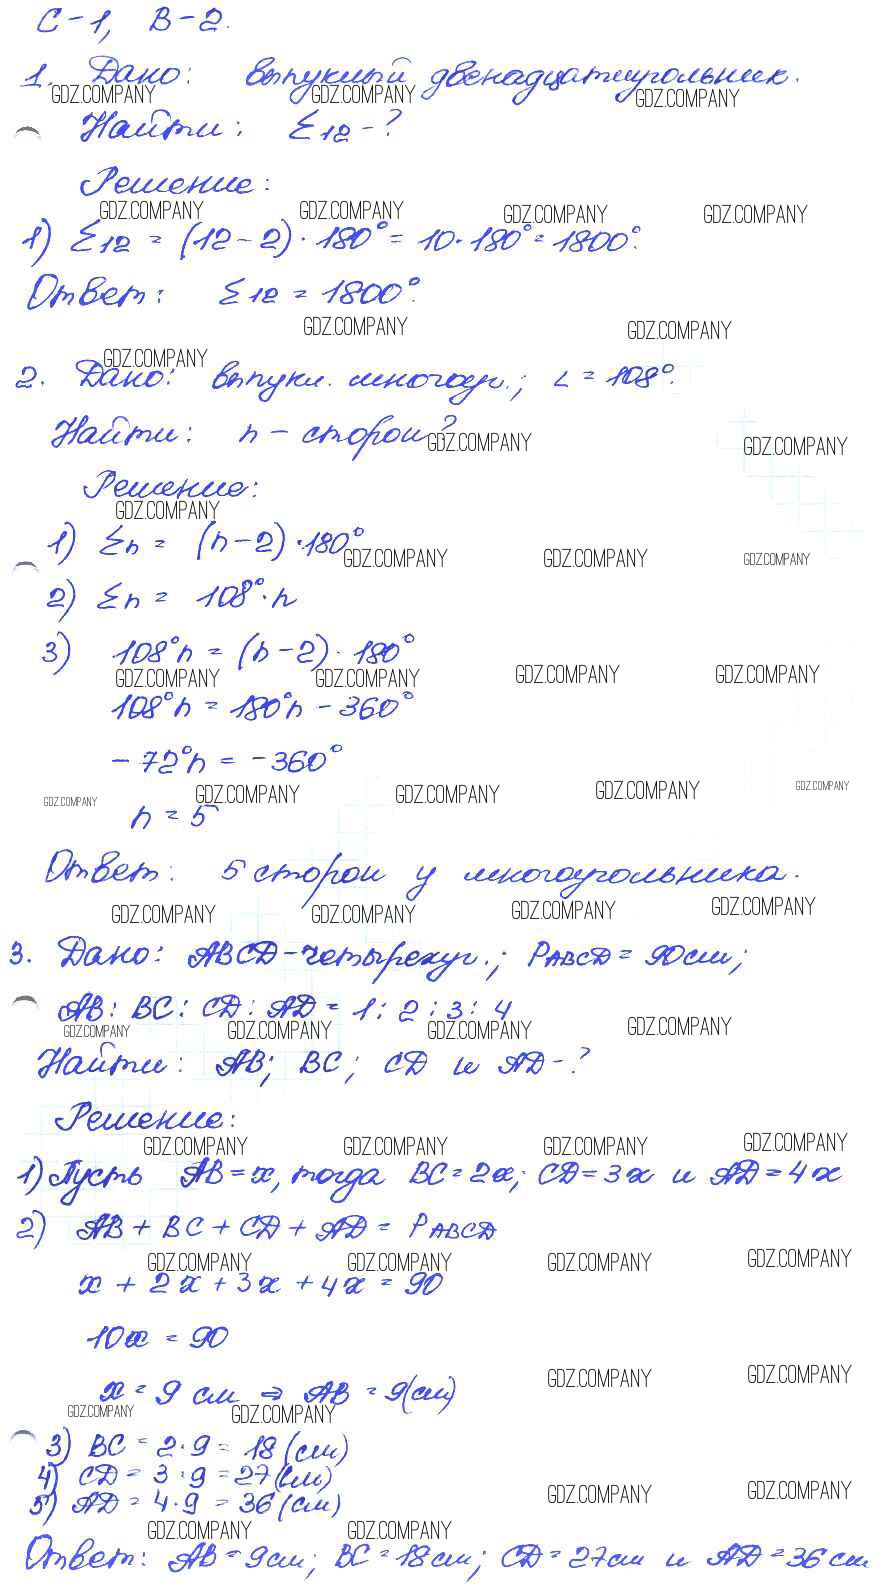 С-1, В-2.
1. Дано: выпуклый двенадцатиугольник.
GDZ.COMPANY GDZ.COMPANY GDZ.COMPANY
Найти: Σ12 - ?
Решение:
GDZ.COMPANY GDZ.COMPANY GDZ.COMPANY GDZ.COMPANY
1) Σ12 = (12 - 2) · 180° = 10 · 180° = 1800°.
Ответ: Σ12 = 1800°.
GDZ.COMPANY GDZ.COMPANY
GDZ.COMPANY
2. Дано: выпукл. многоуг.; ∠ = 108°.
Найти: n - сторон?
GDZ.COMPANY GDZ.COMPANY
Решение:
GDZ.COMPANY
1) Σn = (n - 2) · 180°
GDZ.COMPANY GDZ.COMPANY GDZ.COMPANY
2) Σn = 108° · n
3) 108°n = (n - 2) · 180°
GDZ.COMPANY GDZ.COMPANY GDZ.COMPANY GDZ.COMPANY
108°n = 180°n - 360°
-72°n = -360°
GDZ.COMPANY GDZ.COMPANY GDZ.COMPANY GDZ.COMPANY GDZ.COMPANY
n = 5
Ответ: 5 сторон у многоугольника.
GDZ.COMPANY GDZ.COMPANY GDZ.COMPANY GDZ.COMPANY
3. Дано: ABCD - четырехуг.; PABCD = 90см;
AB : BC : CD : AD = 1 : 2 : 3 : 4
GDZ.COMPANY GDZ.COMPANY GDZ.COMPANY GDZ.COMPANY
Найти: AB; BC; CD и AD - ?
Решение:
GDZ.COMPANY GDZ.COMPANY GDZ.COMPANY GDZ.COMPANY
1) Пусть AB = x, тогда BC = 2x; CD = 3x и AD = 4x
2) AB + BC + CD + AD = PABCD
GDZ.COMPANY GDZ.COMPANY GDZ.COMPANY GDZ.COMPANY
x + 2x + 3x + 4x = 90
10x = 90
GDZ.COMPANY GDZ.COMPANY
x = 9 см ⇒ AB = 9(см)
GDZ.COMPANY GDZ.COMPANY
3) BC = 2 · 9 = 18 (см)
4) CD = 3 · 9 = 27 (см)
GDZ.COMPANY GDZ.COMPANY
5) AD = 4 · 9 = 36 (см)
GDZ.COMPANY GDZ.COMPANY
Ответ: AB = 9см; BC = 18см; CD = 27см и AD = 36см